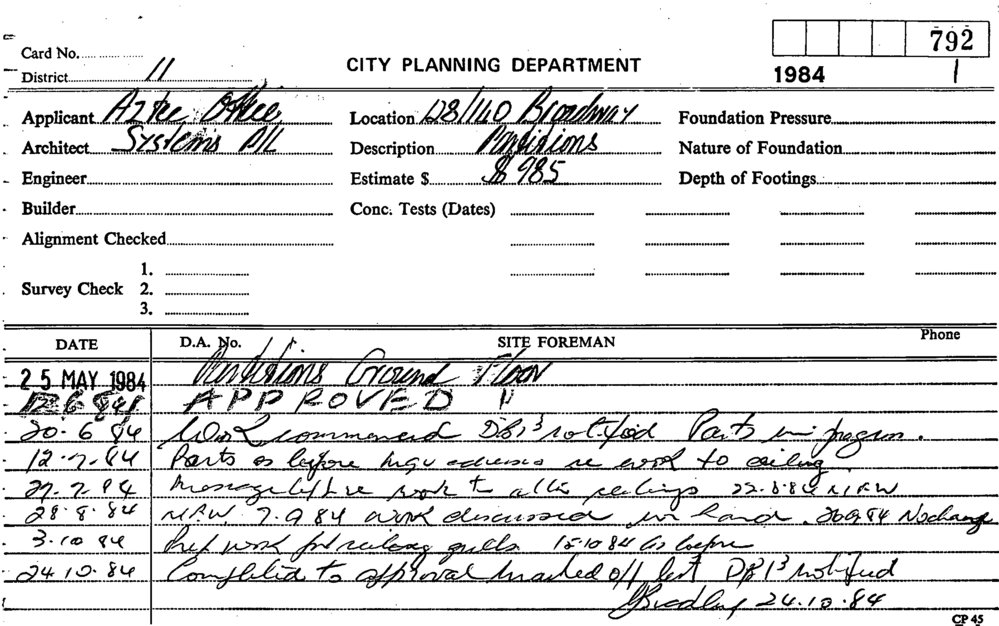 792
Card No.
District 11
CITY PLANNING DEPARTMENT
1984 1
Applicant Aztec Office Location 128/140 Broadway Foundation Pressure
Architect Systems P/L Description Partitions Nature of Foundation
Engineer Estimate $ $985 Depth of Footings
Builder Conc. Tests (Dates)
Alignment Checked
1.
Survey Check 2.
3.
DATE D.A. No. SITE FOREMAN Phone
25 MAY 1984 Partitions Ground Floor
12.6.84 APPROVED
20.6.84 Work commenced DB13 notified Parts in progress.
12.7.84 Parts as before re work to ceiling
27.7.84 Message left re work to ceilings 22.8.84 N.F.W
28.8.84 N.F.W. 7.9.84 work discussed in hand. 20.9.84 No change
3.10.84 work for grills 15.10.84 As before
24.10.84 Completed to approval marked off list DB13 notified
Bradley 24.10.84
CP 45